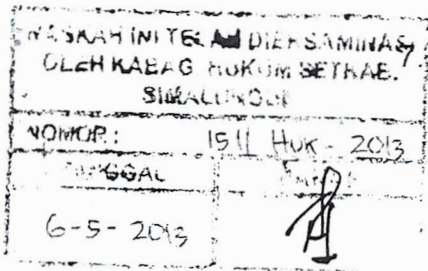 NASKAH INI TELAH DIEKSAMINASI
OLEH KABAG HUKUM SETKAB.
SIMALUNGUN
NOMOR: 1511 HUK - 2013
TANGGAL
6-5-2013